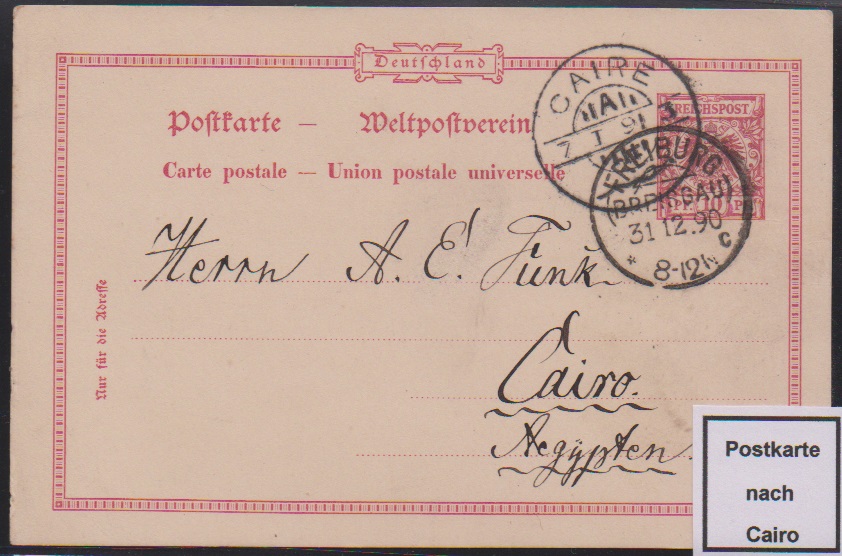 Deutschland
Postkarte — Weltpostverein
Carte postale — Union postale universelle
CAIRE
7 I 91
REICHSPOST
FREIBURG
(BREISGAU)
31 12.90
* 8-12N c
Herrn A. E. Funk
Cairo.
Aegypten.
Nur für die Adresse
Postkarte
nach
Cairo